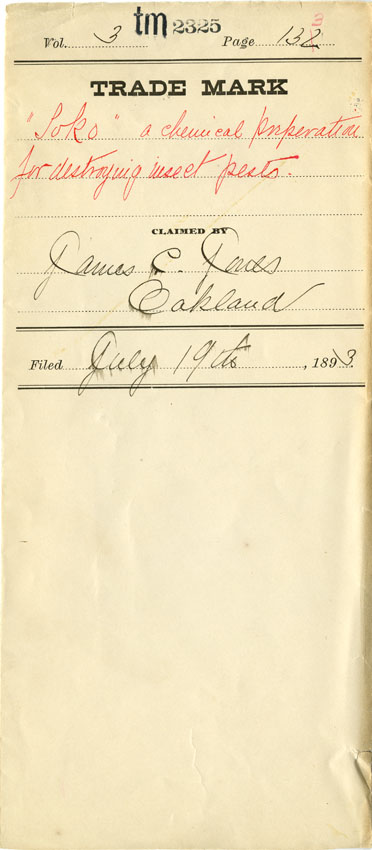 3
tm 2325
Vol. 3 Page 132
TRADE MARK
"Soko" a chemical preperation
for destroying insect pests.
CLAIMED BY
James E. Jones
Oakland
Filed July 19th, 1893